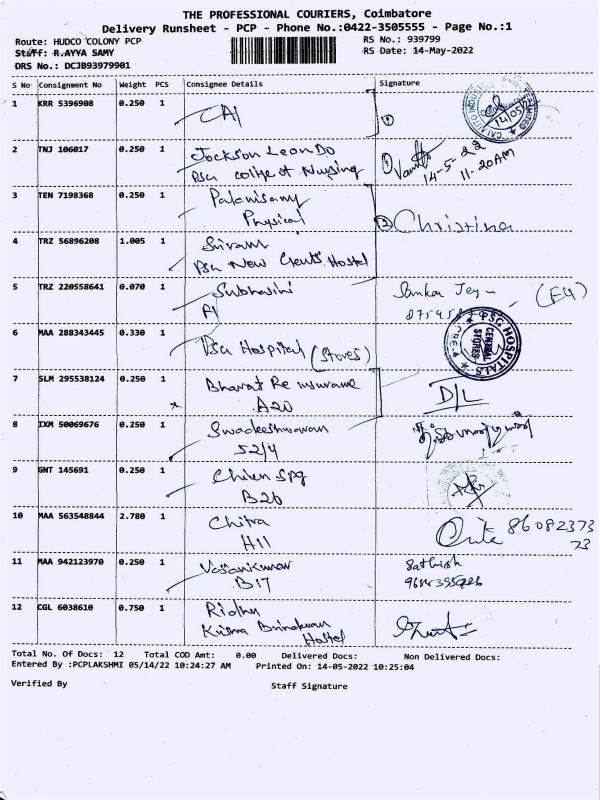 THE PROFESSIONAL COURIERS, Coimbatore
Delivery Runsheet - PCP - Phone No.:0422-3505555 - Page No.:1
Route: HUDCO COLONY PCP
RS No.: 939799
Staff: R.AYYA SAMY
RS Date: 14-May-2022
DRS No.: DCJB93979901
S No Consignment No Weight PCS Consignee Details Signature
1 KRR 5396908 0.250 1
2 TNJ 106017 0.250 1 Jockson Leon Do 14-5-22
Psg College of Nursing 11-20AM
3 TEN 7198368 0.250 1 Palanisamy
Physical Christina
4 TRZ 56896208 1.005 1 Sriram
Psg New Gents Hostel
5 TRZ 220558641 0.070 1 Subhasini
A1
6 MAA 288343445 0.330 1 Psg Hospital (Stores) PSG HOSPITALS
CENTRAL STORES
7 SLM 295538124 0.250 1 Bharat Re insurance D/L
A20
8 IXM 50069676 0.250 1
52/4
9 GNT 145691 0.250 1
B26
10 MAA 563548844 2.780 1 Chitra
H11
11 MAA 942123970 0.250 1 Sathish
B17
12 CGL 6038610 0.750 1
Hostel
Total No. Of Docs: 12 Total COD Amt: 0.00 Delivered Docs: Non Delivered Docs:
Entered By :PCPLAKSHMI 05/14/22 10:24:27 AM Printed On: 14-05-2022 10:25:04
Verified By Staff Signature